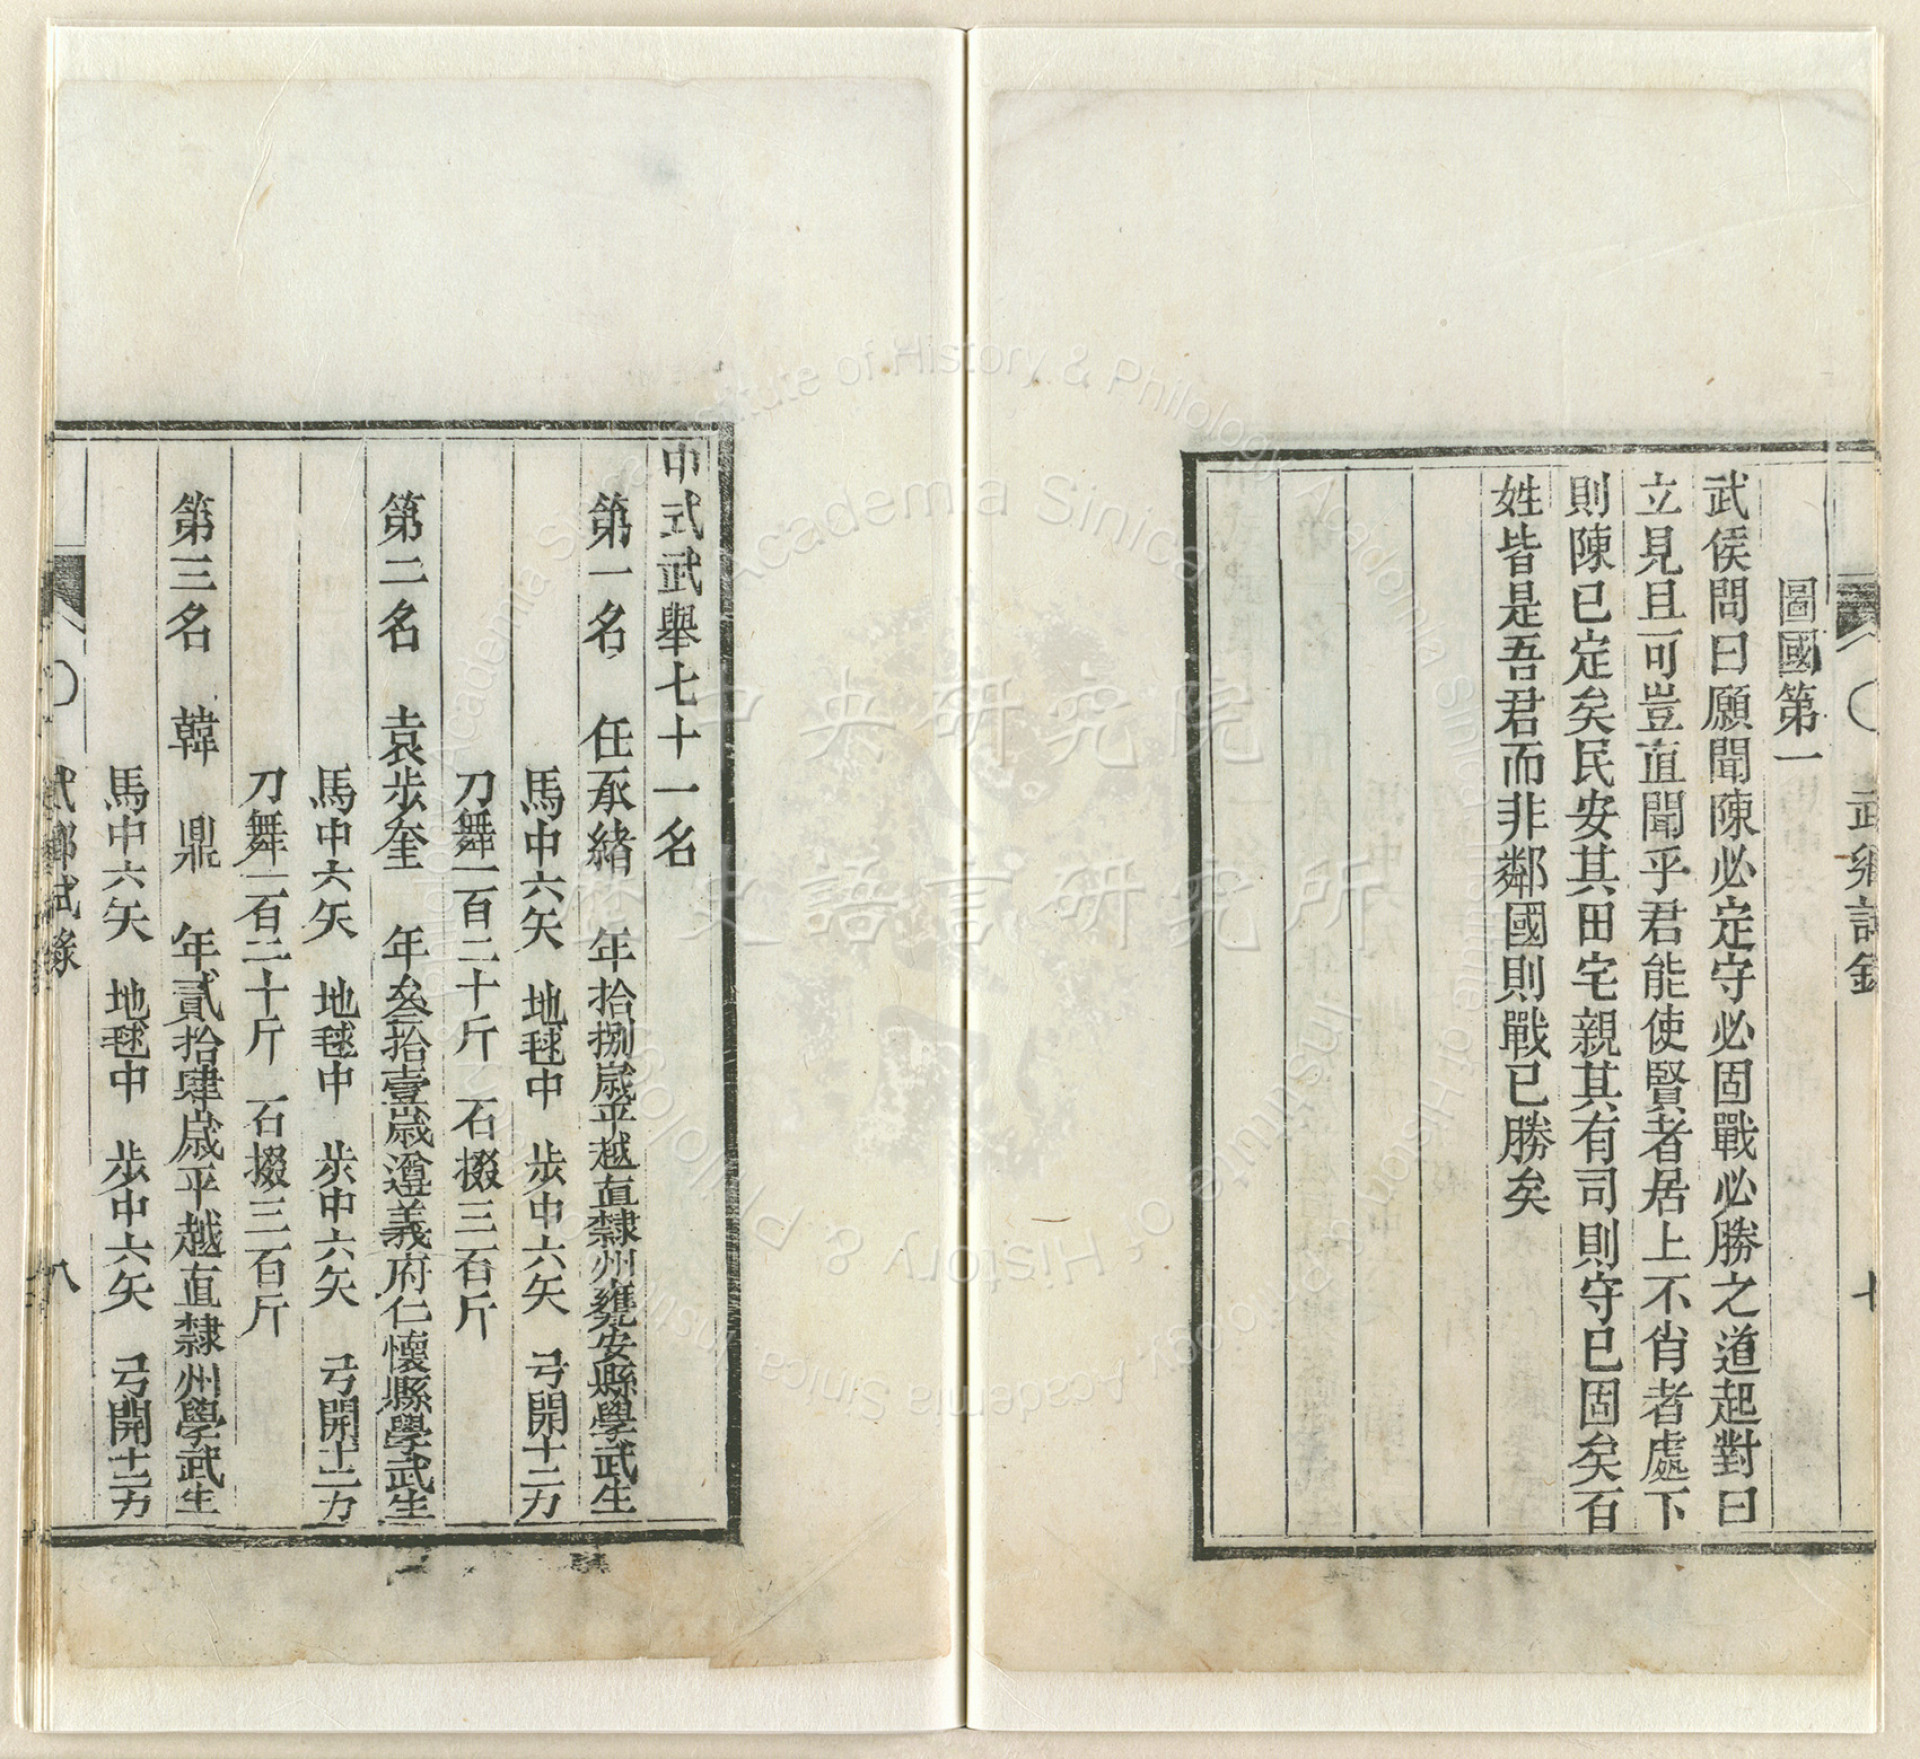 武鄉試錄 七
圖國第一
武侯問曰願聞陳必定守必固戰必勝之道起對曰
立見且可豈直聞乎君能使賢者居上不肖者處下
則陳已定矣民安其田宅親其有司則守已固矣百
姓皆是吾君而非鄰國則戰已勝矣
中式武舉七十一名
第一名 任承緒 年拾捌歲平越直隸州甕安縣學武生
馬中六矢 地毬中 步中六矢 弓開十二力
刀舞一百二十斤 石掇三百斤
第二名 袁步奎 年叁拾壹歲遵義府仁懷縣學武生
馬中六矢 地毬中 步中六矢 弓開十二力
刀舞一百二十斤 石掇三百斤
第三名 韓 鼎 年貳拾肆歲平越直隸州學武生
馬中六矢 地毬中 步中六矢 弓開十二力
武鄉試錄 八
中央研究院
歷史語言研究所
Institute of History & Philology Academia Sinica